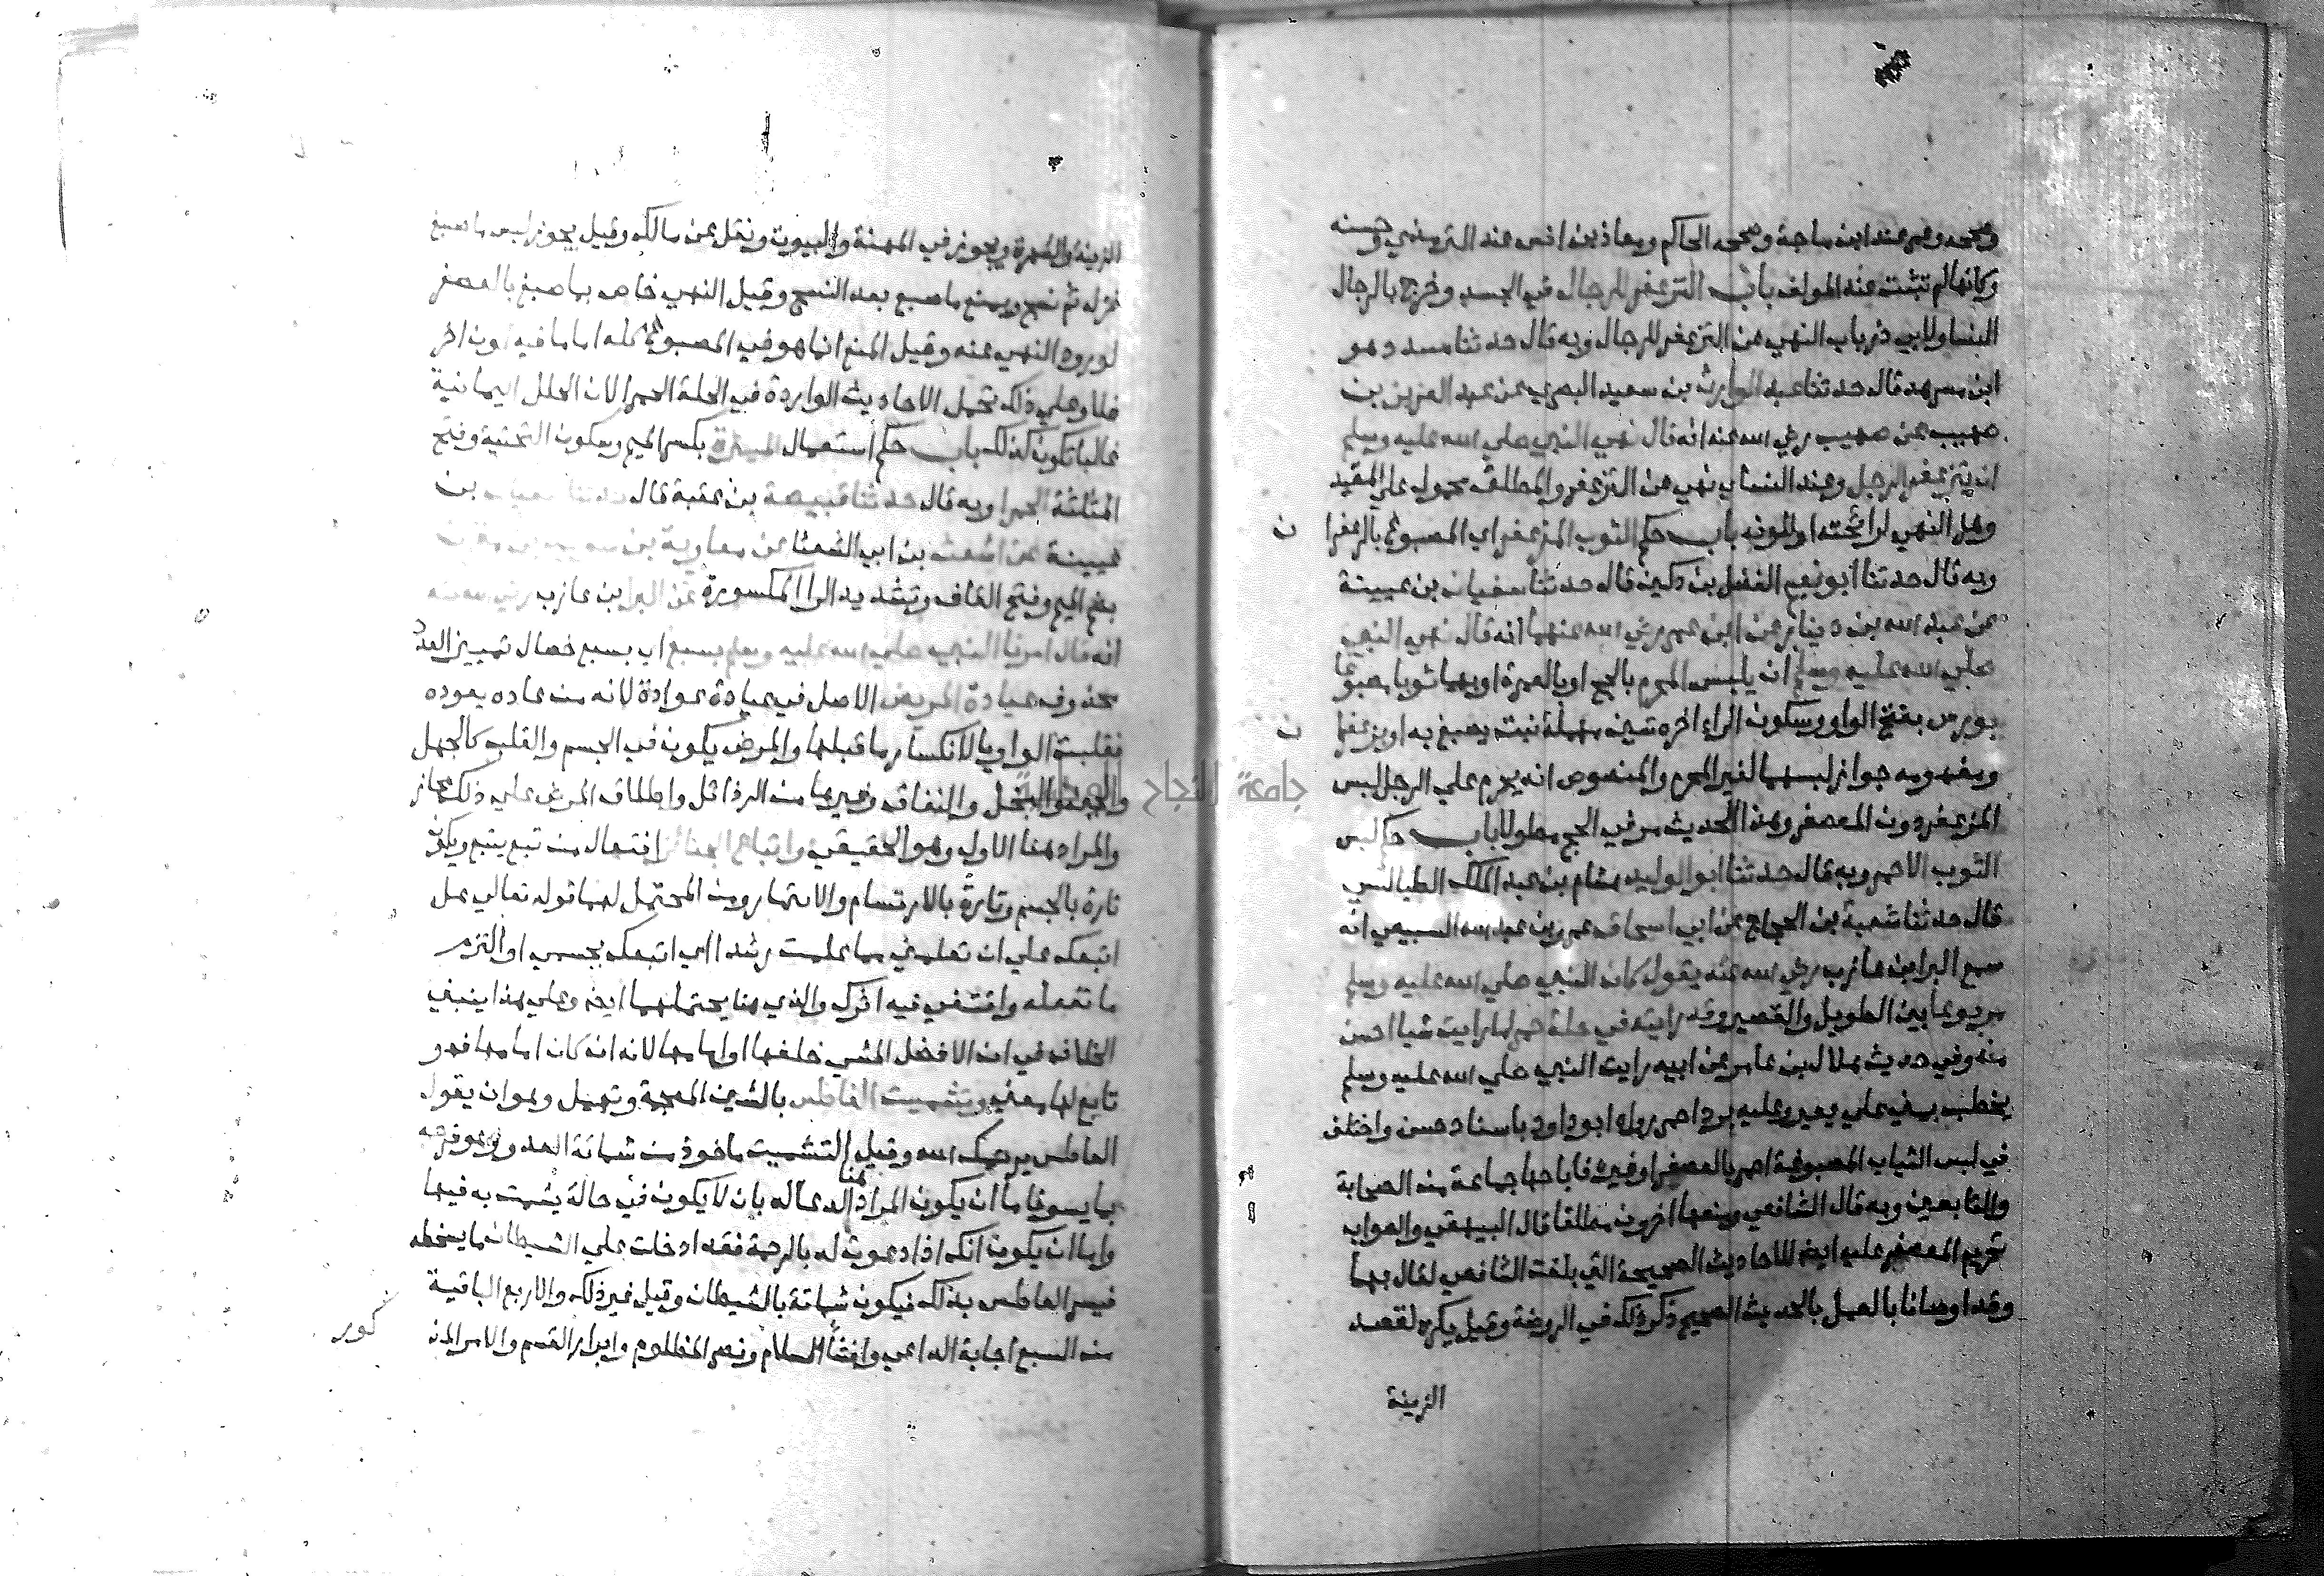 وصححه وعمر عند ابن ماجة وصححه الحاكم ومعاذ بن انس عند الترمذي وحسنه
وكانها لم تثبت عند المولف باب التزعفر للرجال في الجسد وخرج بالرجال
النسا ولابي ذر باب النهي عن التزعفر للرجال وبه قال حدثنا مسدد هو
ابن مسرهد قال حدثنا عبد الوارث بن سعيد البصري عن عبد العزيز بن
صهيب عن صهيب رضي الله عنه انه قال نهي النبي صلي الله عليه وسلم
ان يتزعفر الرجل وعند النساي نهي عن التزعفر والمطلق محمول علي المقيد
وهل النهي لرائحته او للونه باب حكم الثوب المزعفر اي المصبوغ بالزعفرا ن
وبه قال حدثنا ابو نعيم الفضل بن دكين قال حدثنا سفيان بن عيينة
عن عبد الله بن دينار عن ابن عمر رضي الله عنهما انه قال نهي النبي
صلي الله عليه وسلم ان يلبس المحرم بالحج او بالعمرة او بهما ثوبا مصبوغا
بورس بفتح الواو وسكون الراء اخره سين مهملة نبت يصبغ به او بزعفرا ن
ومفهومه جواز لبسهما لغير المحرم والمنصوص انه يحرم علي الرجل لبس
المزعفر دون المعصفر وهذا الحديث مر في الحج مطولا باب حكم لبس
الثوب الاحمر وبه قال حدثنا ابو الوليد هشام بن عبد الملك الطيالسي
قال حدثنا شعبة بن الحجاج عن ابي اسحاق عمرو بن عبد الله السبيعي انه
سمع البرا بن عازب رضي الله عنه يقول كان النبي صلي الله عليه وسلم
مربوعا بين الطويل والقصير وقد رايته في حلة حمرا ما رايت شيا احسن
منه وفي حديث هلال بن عامر عن ابيه رايت النبي صلي الله عليه وسلم
يخطب بمني علي بعير وعليه برد احمر رواه ابو داود باسناد حسن واختلف
في لبس الثياب المصبوغة احمر بالعصفر او غيره فاباحها جماعة من الصحابة
والتابعين وبه قال الشافعي ومنعها اخرون مطلقا قال البيهقي والصواب
تحريم المعصفر عليه ايضا للاحاديث الصحيحة التي بلغت الشافعي لقال بها
وقد اوصانا بالعمل بالحديث الصحيح ذكر ذلك في الروضة وقيل يكره لقصد
الزينة
الزينة والشهرة ويجوز في المهنة والبيوت ونقل عن مالك وقيل يجوز لبس ما صبغ
غزله ثم نسج ويمنع ما صبغ بعد النسج وقيل النهي خاص بما صبغ بالعصفر
لورود النهي عنه وقيل المنع انما هو في المصبوغ كله اما ما فيه لون اخر
فلا وعلي ذلك تحمل الاحاديث الواردة في الحلة الحمرا لان الحلل اليمانية
غالبا تكون كذلك باب حكم استعمال الميثرة بكسر الميم وسكون التحتية وفتح
المثلثة الحمرا وبه قال حدثنا قبيصة بن عقبة قال حدثنا سفيان بن
عيينة عن اشعث بن ابي الشعثا عن معاوية بن سويد بن مقرن
بضم الميم وفتح القاف وتشديد الرا المكسورة عن البرا بن عازب رضي الله عنه
انه قال امرنا النبي صلي الله عليه وسلم بسبع اي بسبع خصال تمييز العدد
محذوف عيادة المريض الاصل في عيادة عوادة لانه من عاده يعوده
فقلبت الواو يا لانكسار ما قبلها والمرض يكون في الجسم والقلب كالجهل
والجبن والبخل والنفاق وغيرها من الرذائل واطلاق المرض علي ذلك مجاز
والمراد هنا الاول وهو الحقيقي واتباع الجنائز افتعال من تبع يتبع ويكون
تارة بالجسم وتارة بالارتسام والائتمار ومن المحتمل لهما قوله تعالي هل
اتبعك علي ان تعلمني مما علمت رشدا اي اتبعك بجسمي او التزم
ما تفعله واقتفي فيه اثرك والذي هنا يحتملهما ايضا وعلي هذا ينبني
الخلاف في ان الافضل المشي خلفها او امامها لانه ان كان امامها فهو
تابع لها معني وتشميت العاطس بالشين المعجمة وتهمل وهو ان يقول
العاطس يرحمك الله وقيل التشميت ماخوذ من شماتة العدو وهو فرحه
بما يسوء فاما ان يكون المراد هنا الدعا له بان لا يكون في حالة يشمت به فيها
واما ان يكون انك اذا دعوت له بالرحمة فقد ادخلت علي الشيطان ما يسخطه
فيسر العاطس بذلك فيكون شماتة بالشيطان وقيل غير ذلك والاربع الباقية
من السبع اجابة الداعي وافشا السلام ونصر المظلوم وابرار القسم والامر المذ
كور
جامعة النجاح الوطنية